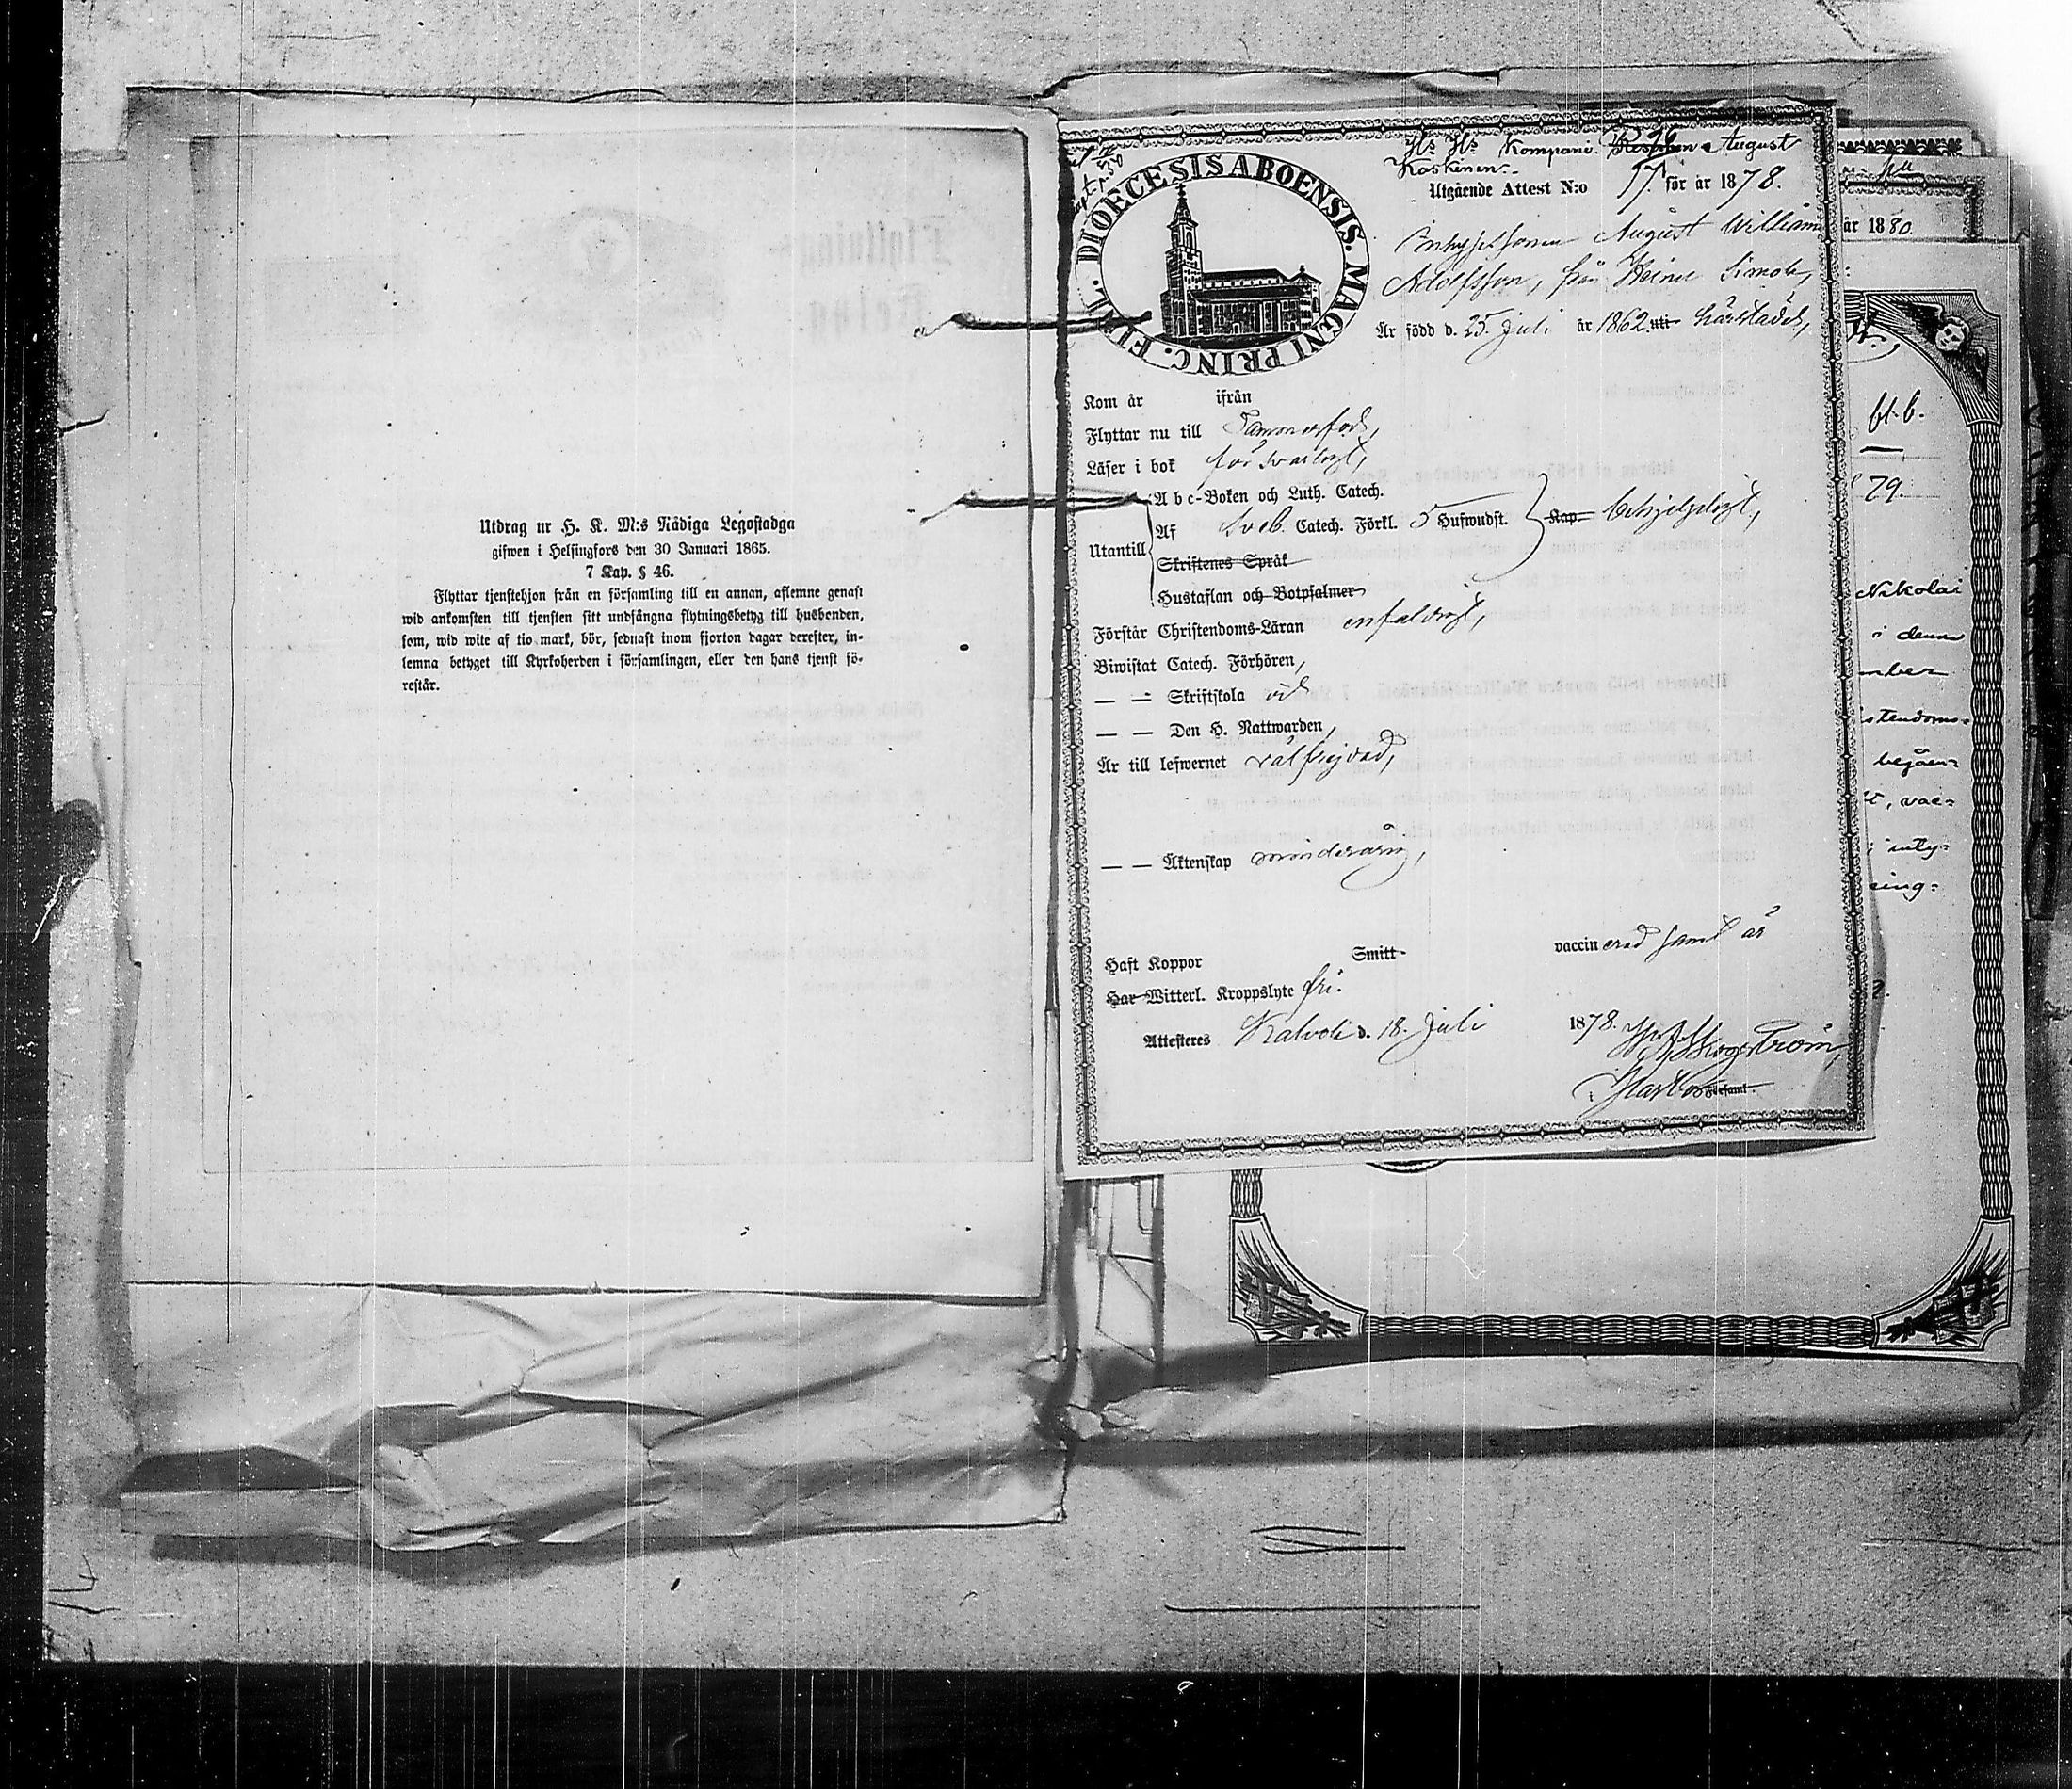 Utdrag ur H. K. M:s Nådiga Legostadga
gifwen i Helsingfors den 30 Januari 1865.
7 Kap. § 46.
Flyttar tjenstehjon från en församling till en annan, aflemne genast
wid ankomsten till tjensten sitt undfångna flytningsbetyg till husbonden,
som, wid wite af tio mark, bör, sednast inom fjorton dagar derefter, in-
lemna betyget till Kyrkoherden i församlingen, eller den hans tjenst fö-
restår.
DIOECESIS ABOENSIS. MAGNI PRINC. FINL.
Kompani. August
Koskinen.
Utgående Attest N:o 57. för år 1878.
August William
Adolfsson, från Heinu Simola,
Är född d. 25 Juli år 1862 uti härstädes,
Kom år ifrån
Flyttar nu till Tammerfors,
Läser i bok försvarligt,
Utantill
A b c-Boken och Luth. Catech.
Af Sveb. Catech. Förkl. 5 Hufwudst. Kap. behjelpligt,
Skriftenes Språk
Hustaflan och Botpsalmer
Förstår Christendoms-Läran enfaldigt,
Biwistat Catech. Förhören,
— — Skriftskola och
— — Den H. Nattwarden,
Är till lefwernet välfrejdad,
— — Äktenskap minderårig,
Haft Koppor Smitt- vaccinerad samt är
Har Witterl. Kroppslyte fri.
Attesteres Kalvola d. 18 Juli 1878.
år 1880.
bl. b.
79.
Nikolai
i denna
mber
stendoms-
begåen-
vac-
inty-
ning-